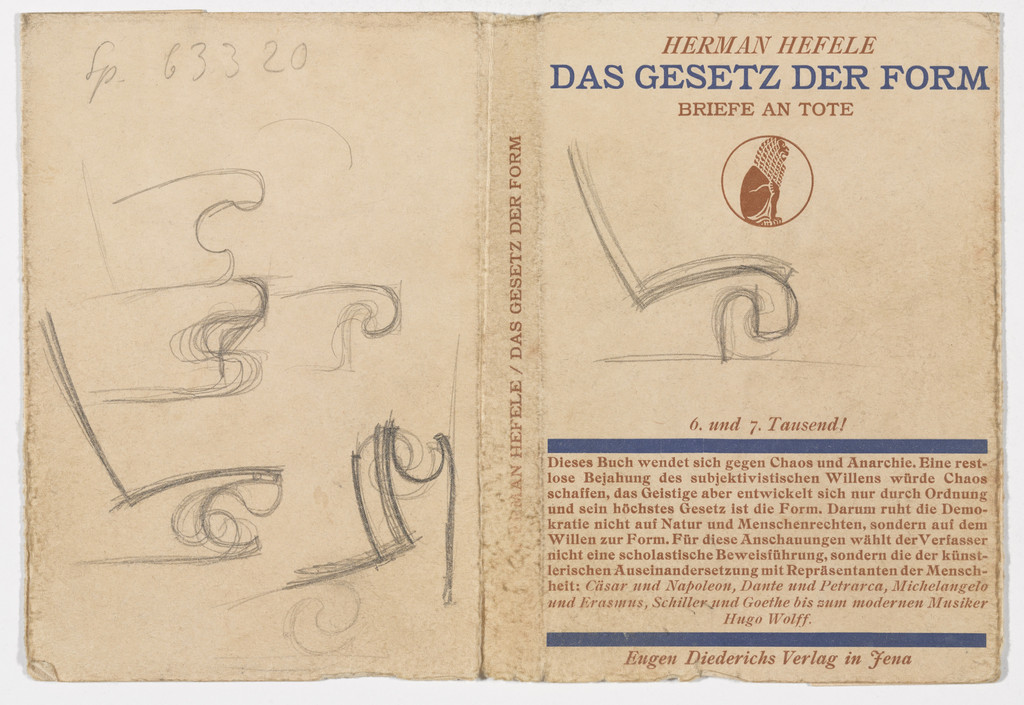 Sp. 63320
HERMAN HEFELE / DAS GESETZ DER FORM
HERMAN HEFELE
DAS GESETZ DER FORM
BRIEFE AN TOTE
6. und 7. Tausend!
Dieses Buch wendet sich gegen Chaos und Anarchie. Eine rest-
lose Bejahung des subjektivistischen Willens würde Chaos
schaffen, das Geistige aber entwickelt sich nur durch Ordnung
und sein höchstes Gesetz ist die Form. Darum ruht die Demo-
kratie nicht auf Natur und Menschenrechten, sondern auf dem
Willen zur Form. Für diese Anschauungen wählt der Verfasser
nicht eine scholastische Beweisführung, sondern die der künst-
lerischen Auseinandersetzung mit Repräsentanten der Mensch-
heit: Cäsar und Napoleon, Dante und Petrarca, Michelangelo
und Erasmus, Schiller und Goethe bis zum modernen Musiker
Hugo Wolff.
Eugen Diederichs Verlag in Jena